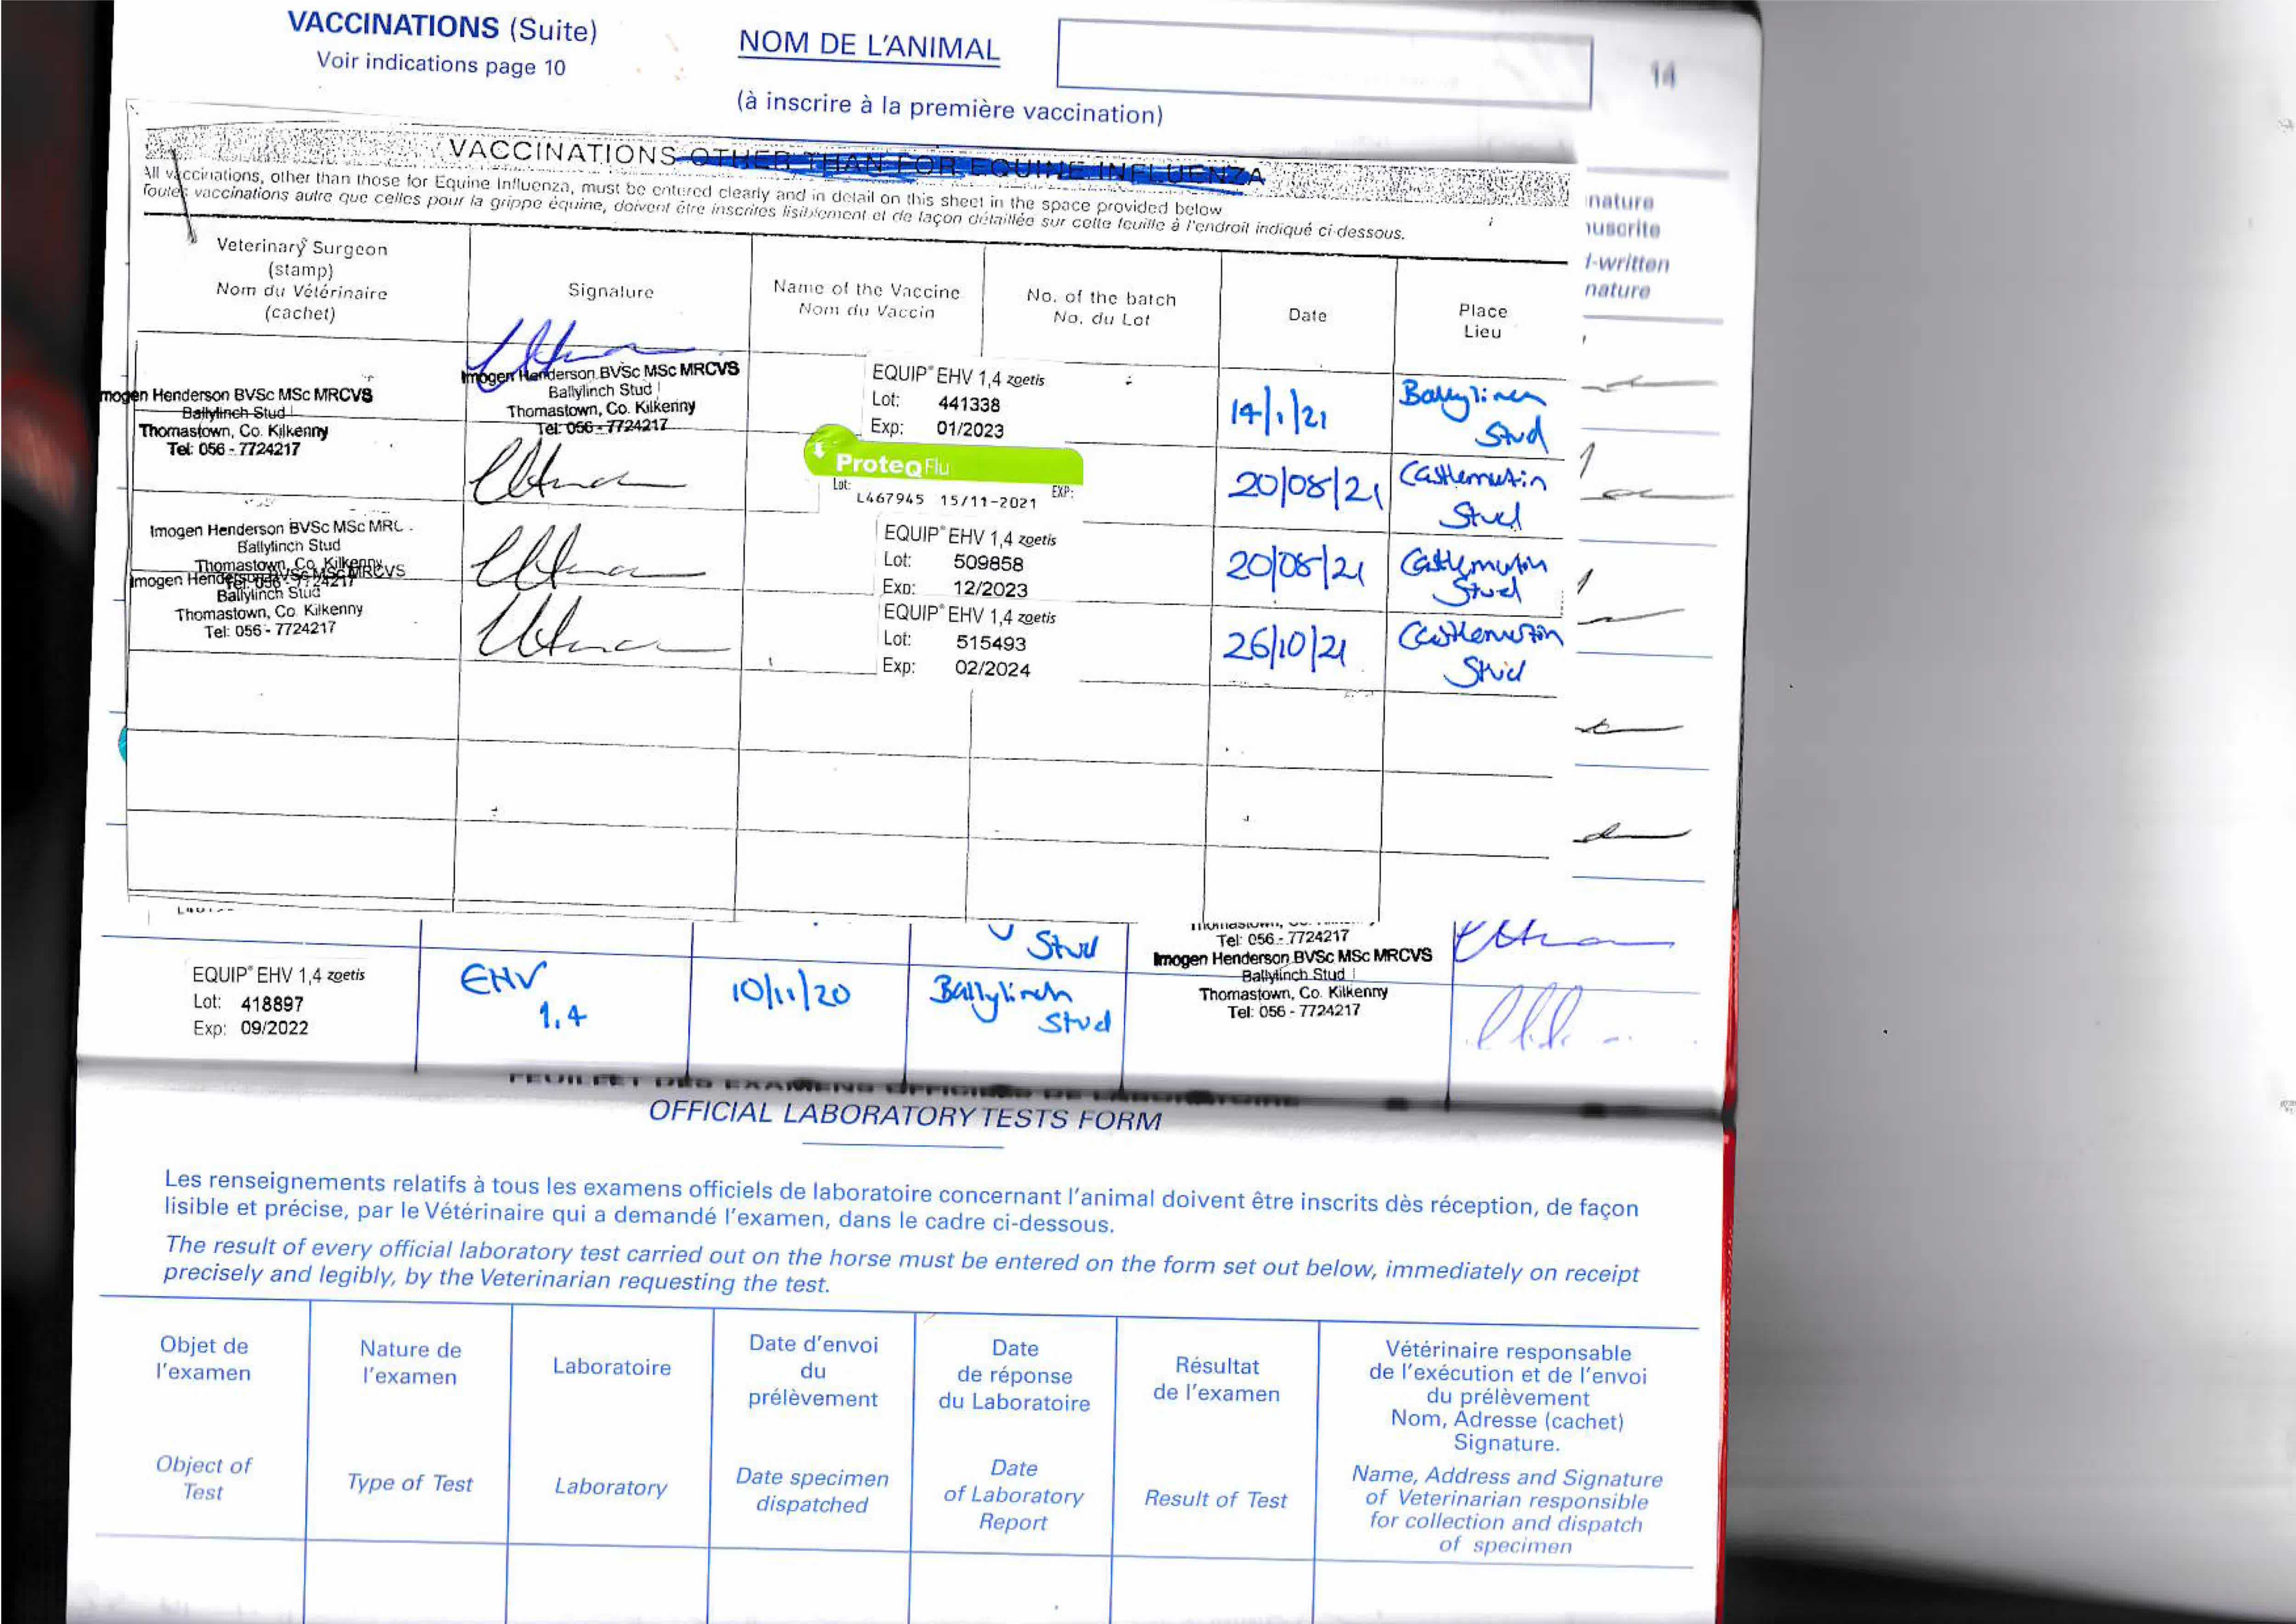 VACCINATIONS (Suite)
Voir indications page 10
NOM DE L'ANIMAL
(à inscrire à la première vaccination)
14
VACCINATIONS OTHER THAN FOR EQUINE INFLUENZA
All vaccinations, other than those for Equine Influenza, must be entered clearly and in detail on this sheet in the space provided below
Toutes vaccinations autre que celles pour la grippe équine, doivent être inscrites lisiblement et de façon détaillée sur cette feuille à l'endroit indiqué ci-dessous.
nature
nuscrite
d-written
nature
Veterinary Surgeon
(stamp)
Nom du Vétérinaire
(cachet)
Signature
Name of the Vaccine
Nom du Vaccin
No. of the batch
No. du Lot
Date
Place
Lieu
mogen Henderson BVSc MSc MRCVS
Ballylinch Stud
Thomastown, Co. Kilkenny
Tel: 056 - 7724217
Imogen Henderson BVSc MSc MRCVS
Ballylinch Stud
Thomastown, Co. Kilkenny
Tel: 056 - 7724217
EQUIP® EHV 1,4 zoetis
Lot: 441338
Exp: 01/2023
14/1/21
Ballylinch
Stud
ProteqFlu
Lot: L467945 15/11-2021 EXP:
20/08/21
Castlemartin
Stud
Imogen Henderson BVSc MSc MRC
Ballylinch Stud
Thomastown, Co. Kilkenny
Tel: 056 - 7724217
EQUIP® EHV 1,4 zoetis
Lot: 509858
Exp: 12/2023
20/08/21
Castlemartin
Stud
Imogen Henderson BVSc MSc MRCVS
Ballylinch Stud
Thomastown, Co. Kilkenny
Tel: 056 - 7724217
EQUIP® EHV 1,4 zoetis
Lot: 515493
Exp: 02/2024
26/10/21
Castlemartin
Stud
Stud
Tel: 056 - 7724217
EQUIP® EHV 1,4 zoetis
Lot: 418897
Exp: 09/2022
EHV
1.4
10/11/20
Ballylinch
Stud
Imogen Henderson BVSc MSc MRCVS
Ballylinch Stud
Thomastown, Co. Kilkenny
Tel: 056 - 7724217
FEUILLET DES EXAMENS OFFICIELS DE LABORATOIRE
OFFICIAL LABORATORY TESTS FORM
Les renseignements relatifs à tous les examens officiels de laboratoire concernant l'animal doivent être inscrits dès réception, de façon
lisible et précise, par le Vétérinaire qui a demandé l'examen, dans le cadre ci-dessous.
The result of every official laboratory test carried out on the horse must be entered on the form set out below, immediately on receipt
precisely and legibly, by the Veterinarian requesting the test.
Objet de
l'examen
Nature de
l'examen
Laboratoire
Date d'envoi
du
prélèvement
Date
de réponse
du Laboratoire
Résultat
de l'examen
Vétérinaire responsable
de l'exécution et de l'envoi
du prélèvement
Nom, Adresse (cachet)
Signature.
Object of
Test
Type of Test
Laboratory
Date specimen
dispatched
Date
of Laboratory
Report
Result of Test
Name, Address and Signature
of Veterinarian responsible
for collection and dispatch
of specimen